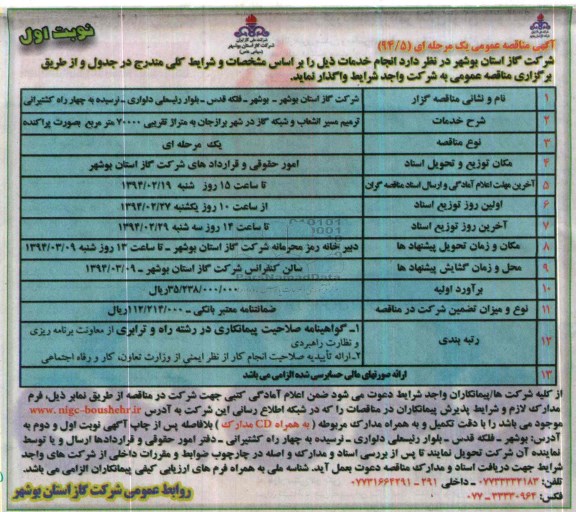 نوبت اول
شرکت ملی گاز ایران
شرکت گاز استان بوشهر
(سهامی خاص)
آگهی مناقصه عمومی یک مرحله ای (۹۴/۵)
شرکت گاز استان بوشهر در نظر دارد انجام خدمات ذیل را بر اساس مشخصات و شرایط کلی مندرج در جدول و از طریق
برگزاری مناقصه عمومی به شرکت واجد شرایط واگذار نماید.
۱ نام و نشانی مناقصه گزار شرکت گاز استان بوشهر - بوشهر - فلکه قدس - بلوار رئیسعلی دلواری - نرسیده به چهار راه کشتیرانی
۲ شرح خدمات ترمیم مسیر انشعاب و شبکه گاز در شهر برازجان به متراژ تقریبی ۷۰۰۰۰ متر مربع بصورت پراکنده
۳ نوع مناقصه یک مرحله ای
۴ مکان توزیع و تحویل اسناد امور حقوقی و قرارداد های شرکت گاز استان بوشهر
۵ آخرین مهلت اعلام آمادگی و ارسال اسناد مناقصه گران تا ساعت ۱۵ روز شنبه ۱۳۹۴/۰۲/۱۹
۶ اولین روز توزیع اسناد از ساعت ۱۰ روز یکشنبه ۱۳۹۴/۰۲/۲۷
۷ آخرین روز توزیع اسناد تا ساعت ۱۴ روز سه شنبه ۱۳۹۴/۰۲/۲۹
۸ مکان و زمان تحویل پیشنهاد ها دبیر خانه رمز محرمانه شرکت گاز استان بوشهر - تا ساعت ۱۳ روز شنبه ۱۳۹۴/۰۳/۰۹
۹ محل و زمان گشایش پیشنهاد ها سالن کنفرانس شرکت گاز استان بوشهر - ۱۳۹۴/۰۳/۰۹
۱۰ برآورد اولیه ۳۵/۲۳۸/۰۰۰/۰۰۰ریال
۱۱ نوع و میزان تضمین شرکت در مناقصه ضمانتنامه معتبر بانکی - ۱۱۲/۲۱۴/۰۰۰ریال
۱۲ رتبه بندی ۱- گواهینامه صلاحیت پیمانکاری در رشته راه و ترابری از معاونت برنامه ریزی
و نظارت راهبردی
۲-ارائه تأییدیه صلاحیت انجام کار از نظر ایمنی از وزارت تعاون، کار و رفاه اجتماعی
۱۳ ارائه صورتهای مالی حسابرسی شده الزامی می باشد
از کلیه شرکت ها/پیمانکاران واجد شرایط دعوت می شود ضمن اعلام آمادگی کتبی جهت شرکت در مناقصه از طریق نمابر ذیل، فرم
مدارک لازم و شرایط پذیرش پیمانکاران در مناقصات را که در شبکه اطلاع رسانی این شرکت به آدرس www.nigc-boushehr.ir
موجود می باشد را با دقت تکمیل و به همراه مدارک مربوطه (به همراه CD مدارک) بلافاصله پس از چاپ آگهی نوبت اول و دوم به
آدرس: بوشهر - فلکه قدس - بلوار رئیسعلی دلواری - نرسیده به چهار راه کشتیرانی - دفتر امور حقوقی و قراردادها ارسال و یا توسط
نماینده آن شرکت تحویل نمایند تا پس از بررسی اسناد و مدارک و اصله در چارچوب ضوابط و مقررات داخلی از شرکت های واجد
شرایط جهت دریافت اسناد و مدارک مناقصه دعوت بعمل آید. شناسه ملی به همراه فرم های ارزیابی کیفی پیمانکاران الزامی می باشد.
تلفن: ۰۷۷۳۳۳۲۱۸۳ - داخلی ۲۹۱ - ۰۷۷۳۱۶۶۴۲۹۱
فکس: ۳۳۳۳۰۹۶۴ - ۰۷۷
روابط عمومی شرکت گاز استان بوشهر